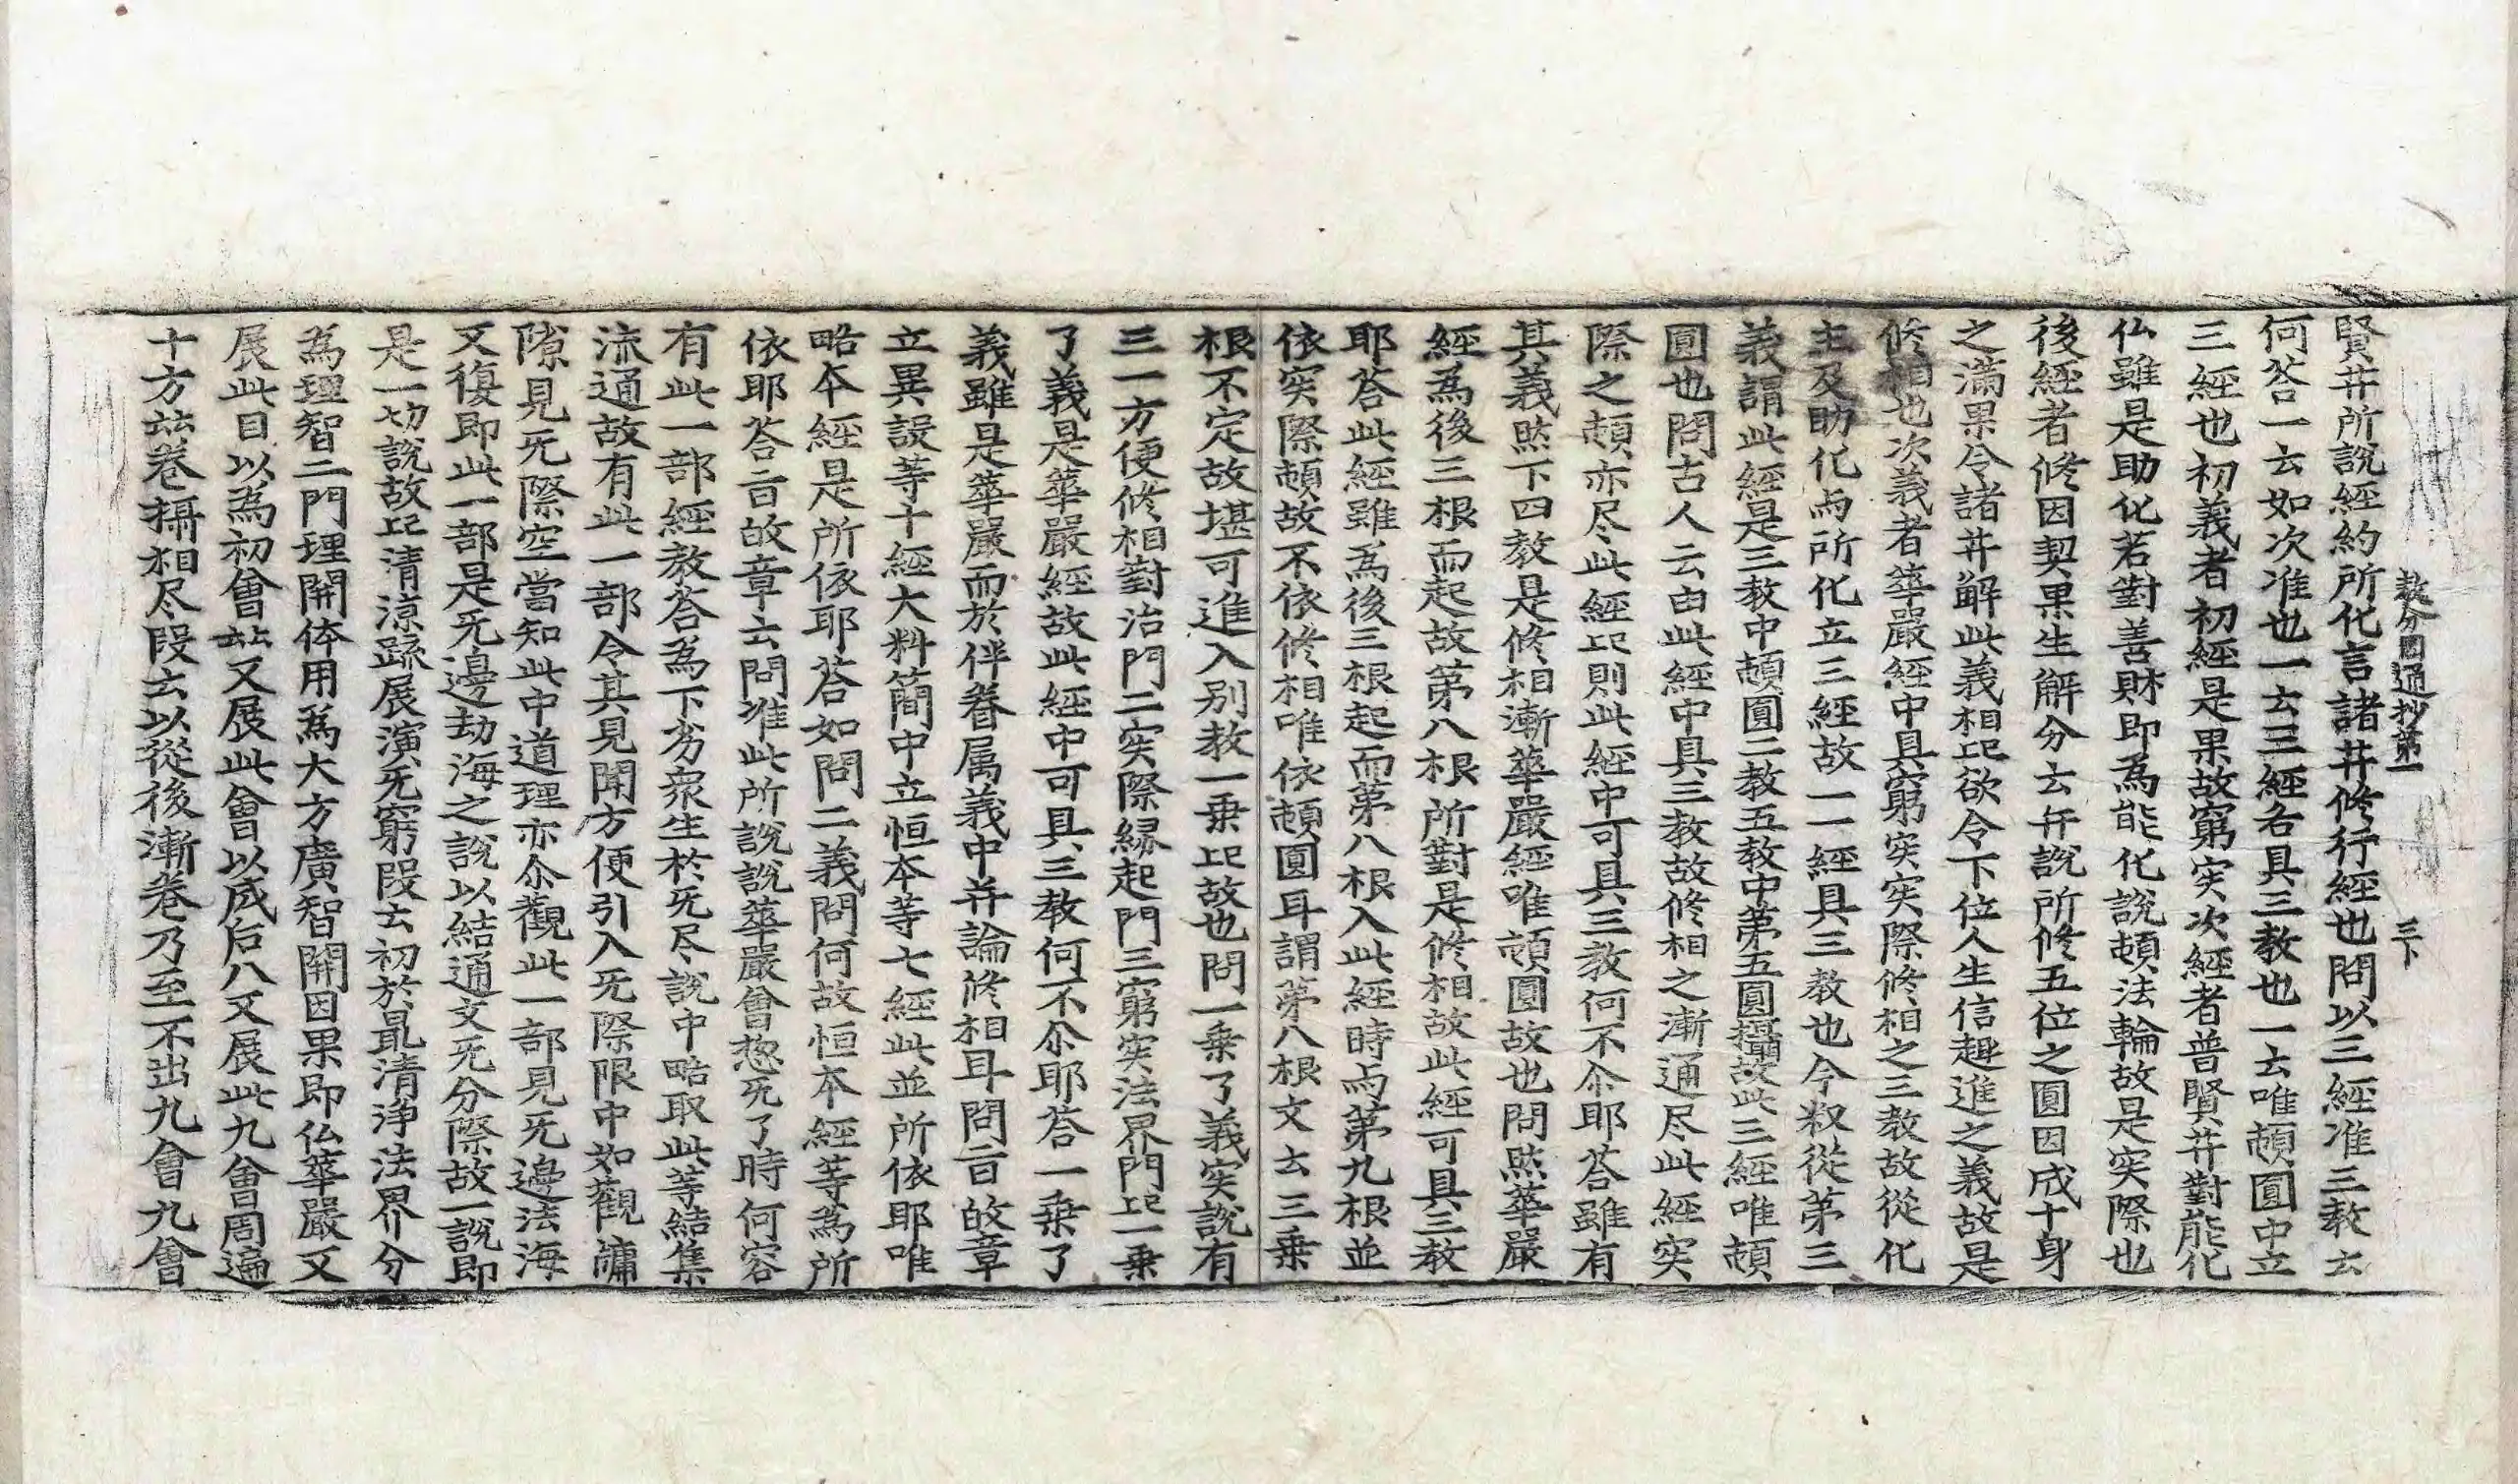 教分圓通抄第一 三下
賢井所說經約所化言諸井修行經也問以三經准三教云
何荅一云如次准也一云三經各具三教也一云唯頓圓中立
三經也初義者初經是果故窮实次經者普賢井對能化
仏雖是助化若對善財即為能化說頓法輪故是实際也
後經者修因契果生解分云年說所修五位之圓因成十身
之滿果令諸井解此義相故欲令下位人生信趣進之義故是
修相也次義者華嚴經中具窮实实際修相之三教故從化
主及助化与所化立三經故一一經具三教也今叙從第三
義謂此經是三教中頓圓二教五教中第五圓攝故此三經唯頓
圓也問古人云由此經中具三教故修相之漸通尽此經实
際之頓亦尽此經記則此經中可具三教何不尒耶荅雖有
其義㷊下四教是修相漸華嚴經唯頓圓故也問㷊華嚴
經為後三根而起故第八根所對是修相故此經可具三教
耶荅此經雖為後三根起而第八根入此經時与第九根並
依实際頓故不依修相唯依頓圓耳謂第八根文云三乗
根不定故堪可進入別教一乗記故也問一乗了義实說有
三一方便修相對治門二实際緣起門三窮实法界門記一乗
了義是華嚴經故此經中可具三教何不尒耶荅一乗了
義雖是華嚴而於伴眷属義中并論修相耳問㫖故章
立異說等十經大料簡中立恒本等七經此並所依耶唯
略本經是所依耶荅如問二義問何故恒本經等為所
依耶荅㫖故章云問准此所說說華嚴會惣无了時何容
有此一部經教荅為下劣衆生於无尽說中略取此等結集
流通故有此一部令其見聞方便引入无際限中如觀牗
隙見无際空當知此中道理亦尒觀此一部見无邊法海
又復即此一部是无邊劫海之說以結通文无分際故一說即
是一切說故記清涼䟽展演无窮段云初於最清淨法界分
為理智二門理開体用為大方廣智開因果即仏華嚴又
展此目以為初會㘴又展此會以成后八又展此九會周遍
十方㘴卷攝相尽段云以從後漸卷乃至不出九會九會